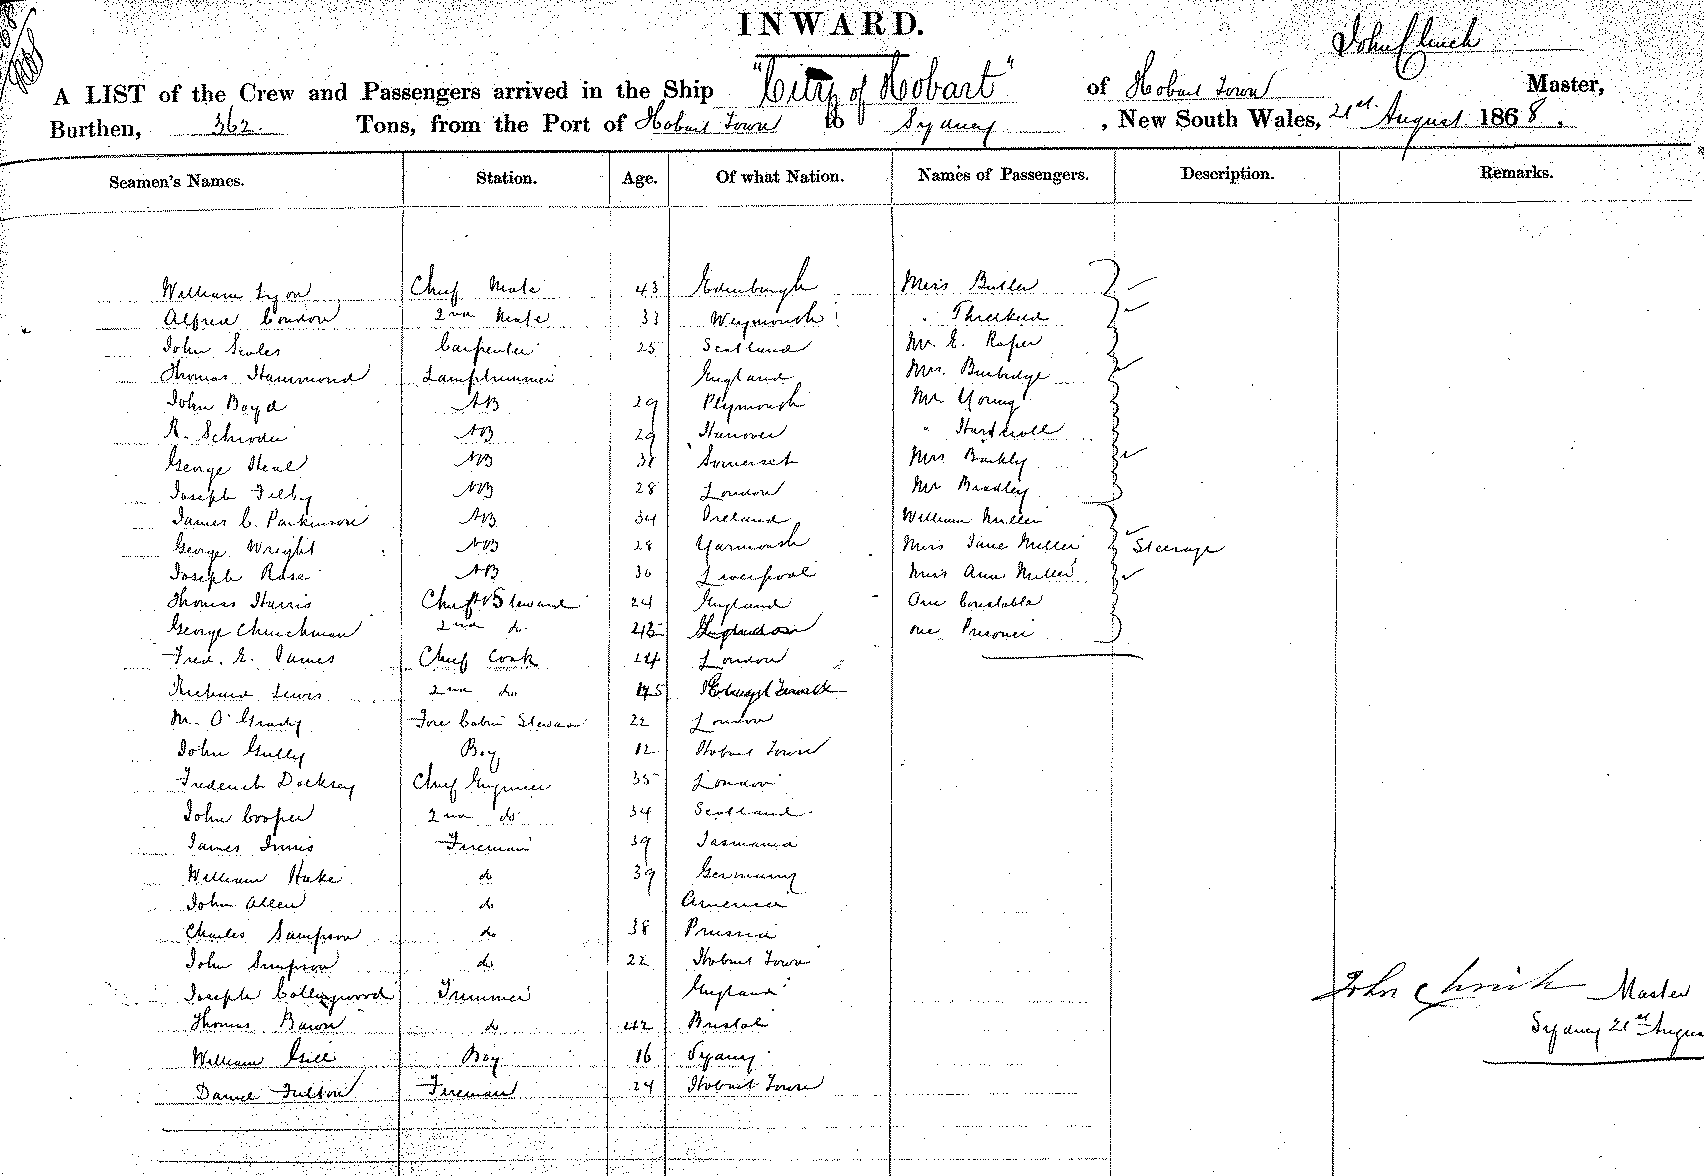 INWARD.
John Clinch
A LIST of the Crew and Passengers arrived in the Ship "City of Hobart" of Hobart Town Master,
Burthen, 362 Tons, from the Port of Hobart Town to Sydney, New South Wales, 21st August 1868.
Seamen's Names. Station. Age. Of what Nation. Names of Passengers. Description. Remarks.
William Lyon Chief Mate 43 Edinburgh Miss Butler
Alfred Condon 2nd Mate 33 Weymouth " Threlkeld
John Scoles Carpenter 25 Scotland Mr. E. Roper
Thomas Hammond Lamptrimmer England Mrs. Burbidge
John Boyd AB 29 Plymouth Mr Young
R. Schroder AB 29 Hanover "
George Heal AB 38 Somerset Mrs Barkly
Joseph Filby AB 28 London Mr Bradley
James C. Parkinson AB 34 Ireland William Miller
George Wright AB 28 Yarmouth Miss Jane Miller Steerage
Joseph Rose AB 30 Liverpool Miss Ann Miller
Thomas Harris Chief Steward 24 England One Constable
George Churchman 2nd do one Prisoner
Fred. E. James Chief Cook 24 London
Richard Lewis 2nd do
M. O'Grady Fore Cabin Steward 22 London
John Gully Boy 12 Hobart Town
Frederick Docksey Chief Engineer 35 London
John Cooper 2nd do 34 Scotland
James Innis Fireman 39 Tasmania
William Hake do 39 Germany
John Allen do America
Charles Sampson do 38 Prussia
John Simpson do 22 Hobart Town
Joseph Collingwood Trimmer England
Thomas Baron do 42 Bristol
William Gill Boy 16 Sydney
Daniel Fulton Fireman 24 Hobart Town
John Clinch Master
Sydney 21st Augus